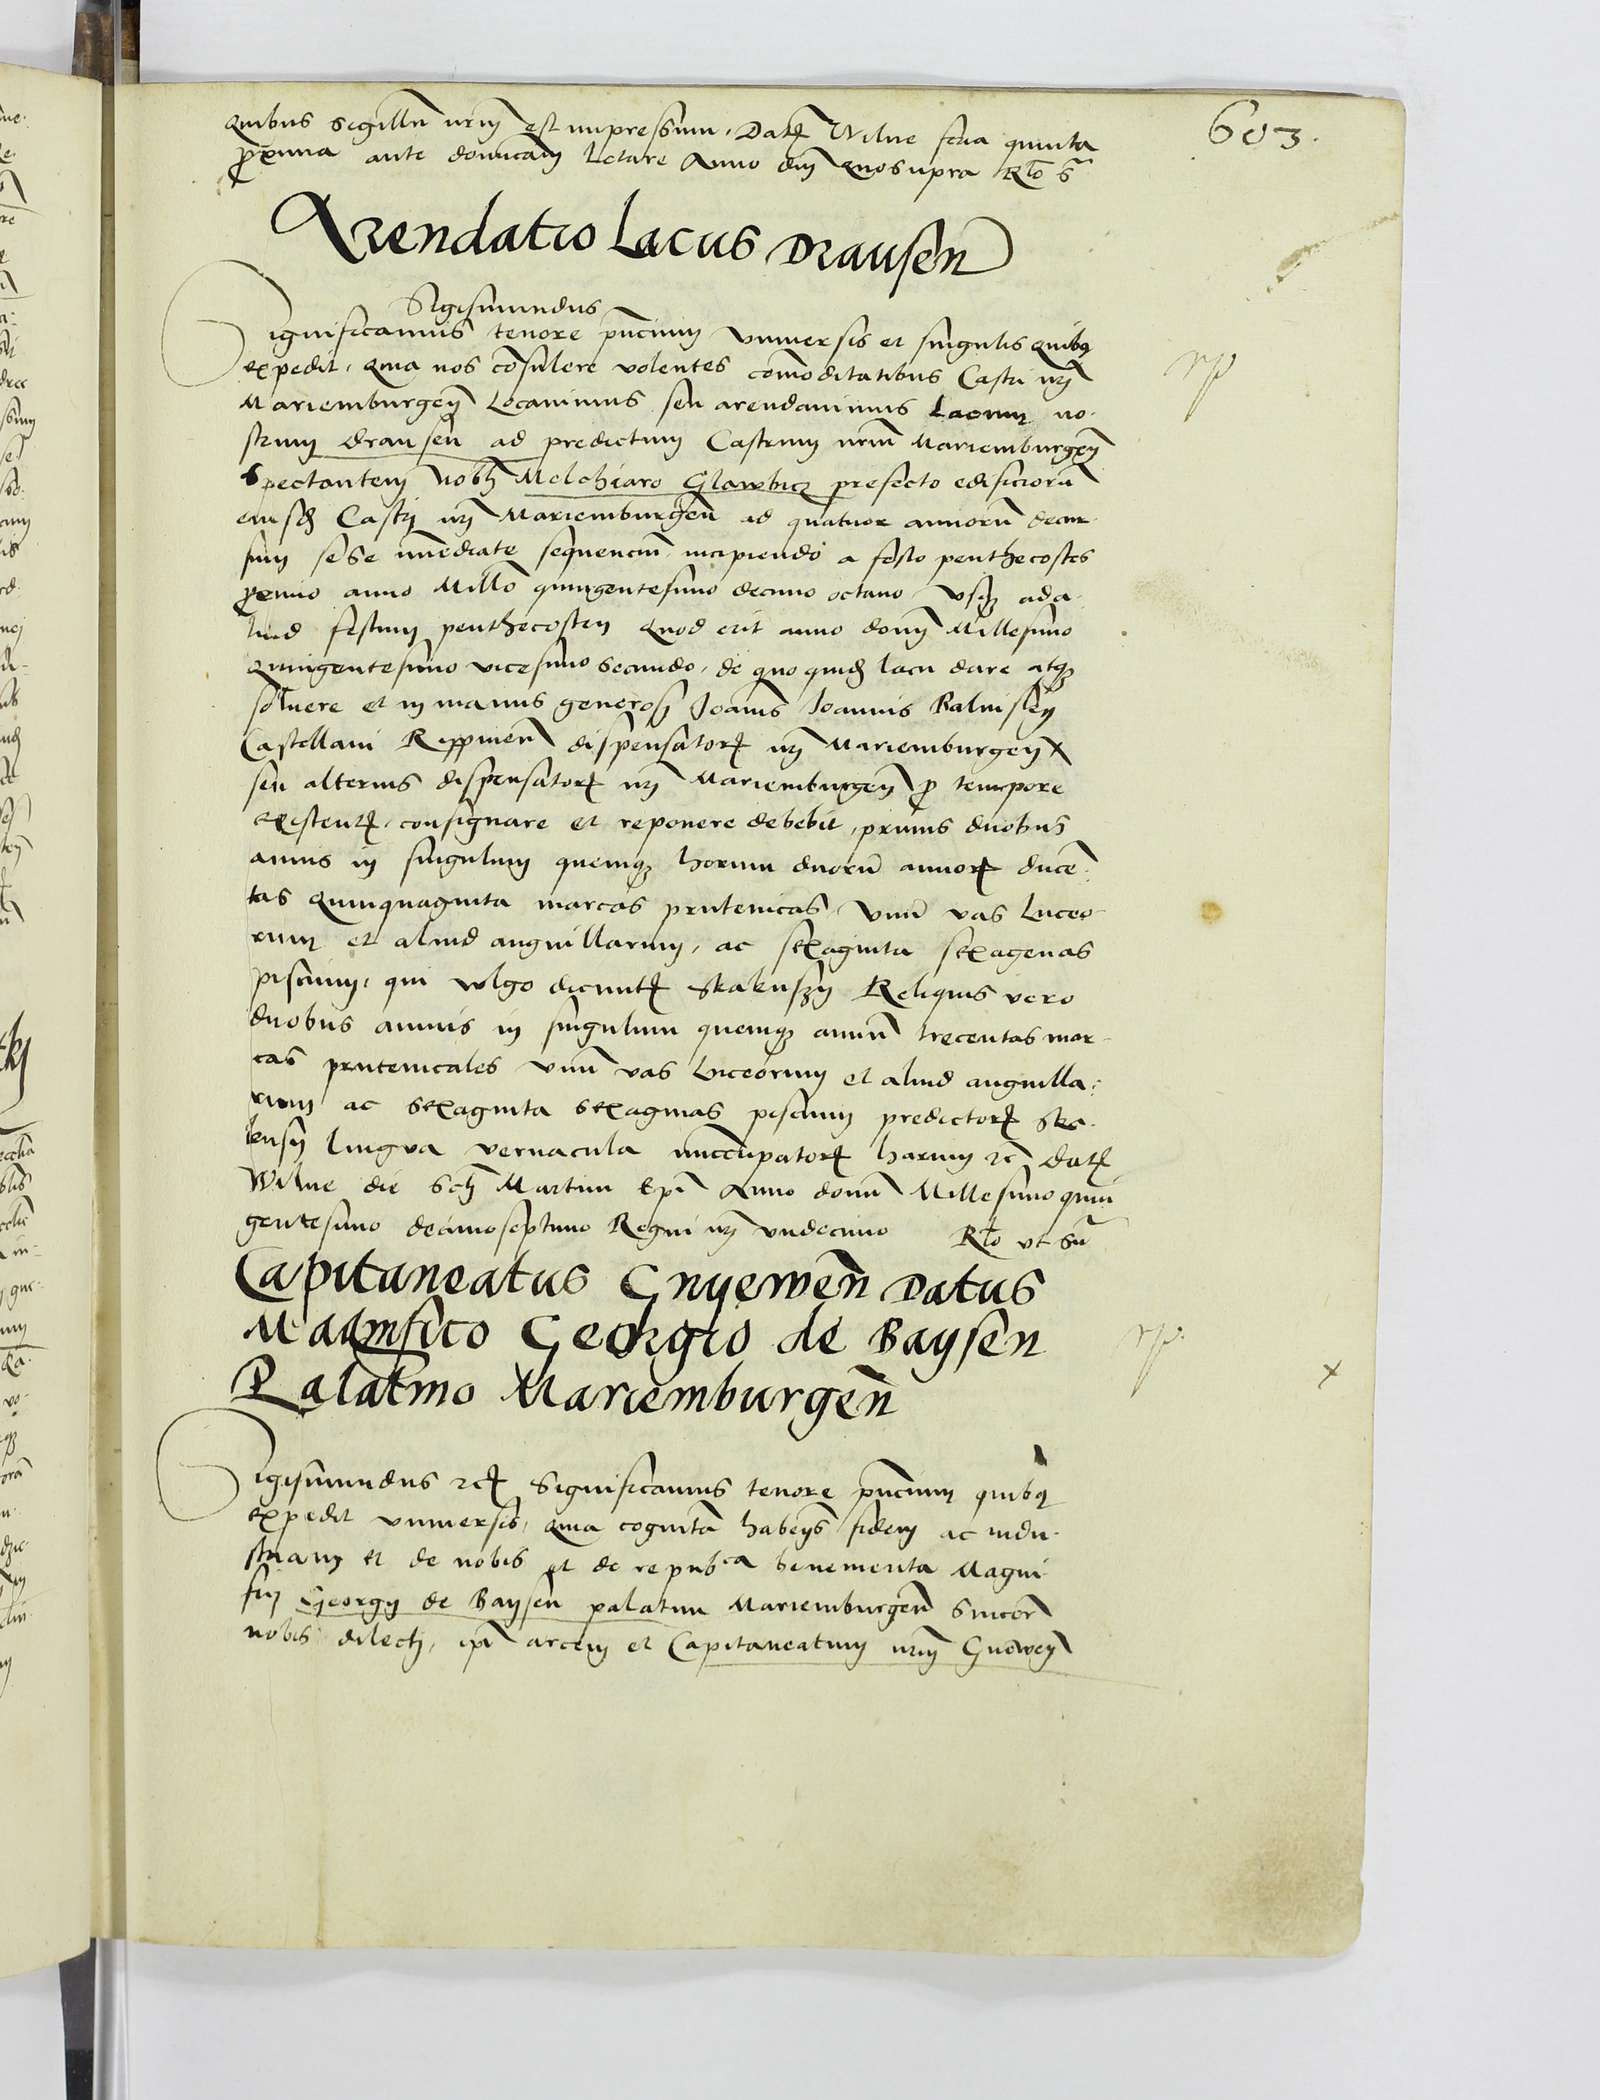 603.
quibus sigillũ nrm̃ est impressum. Datꝝ Wilne feria quinta
proxima ante domĩcam Letare Anno dnĩ quosupra Rlõ S
Arendatio Lacus Drausen
Sigismundus
Significamus tenore pñcium vniuersis et singulis quibꝫ
expedit, quia nos cõsulere volentes cõmoditatibus Castri nrĩ
Mariemburgeñ Locauimus seu arendauimus Lacum no-
strum drauseñ ad predictum Castrum nrm̃ Mariemburgeñ
Spectantem Nobĩ Melchiaro Glawbicz prefecto edificiorũ
eiusdẽ Castri nrĩ Mariemburgeñ ad quatuor annorũ decur-
sum se se imẽdiate sequenciũ incipiendo a festo penthecostes
proximo anno Millõ quingentesimo decimo octauo vsqꝫ ad a-
liud festum penthecosten quod erit anno domĩ Millesimo
quingentesimo vicesimo secundo, de quo quidẽ lacu dare atqꝫ
soluere et in manus generosi Joannis Joannis Balinsky
Castellani Rippineñ dispensatorꝭ nrĩ Mariemburgeñ
seu alterius dispensatorꝭ nrĩ Mariemburgeñ p̱ tempore
existentꝭ, consignare et reponere debebit, primis duobus
annis in singulum quemqꝫ horum duorũ annorꝝ ducẽ-
tas quinquaginta marcas prutenicas, Vnũ vas Luceo-
rum et aliud anguillarum, ac sexaginta sexagenas
piscium, qui vulgo dicuntꝭ Skakuszy Reliquis vero
duobus annis in singulum quemqꝫ annũ trecentas mar-
cas prutenicales vnũ vas Luceorum et aliud anguilla-
rum ac sexaginta sexaginas piscium predictorꝝ Ska-
kusy lingua vernacula nuncupatorꝝ harum ꝛc̃ datꝝ
Wilne die Scti Martini Epĩ Anno domĩ Millesimo quin
gentesimo decimoseptimo Regni nrĩ vndecimo Rlõ vt Sũ
Capitaneatus Gnyeweñ Datus
Magnifico Georgio de Baysen
Palatino Mariemburgeñ
Sigismundus ꝛcꝭ Significamus tenore pñcium quibꝫ
expedit vniuersis, quia cognitã habeñs fidem ac indu-
striam et de nobis et de repubca benemerita Magni-
fici Georgy de Baysen palatini Mariemburgeñ Sincerẽ
nobis dilecti, ipĩ arcem et Capitaneatum nrm̃ Gneweñ
rp
rp.
x